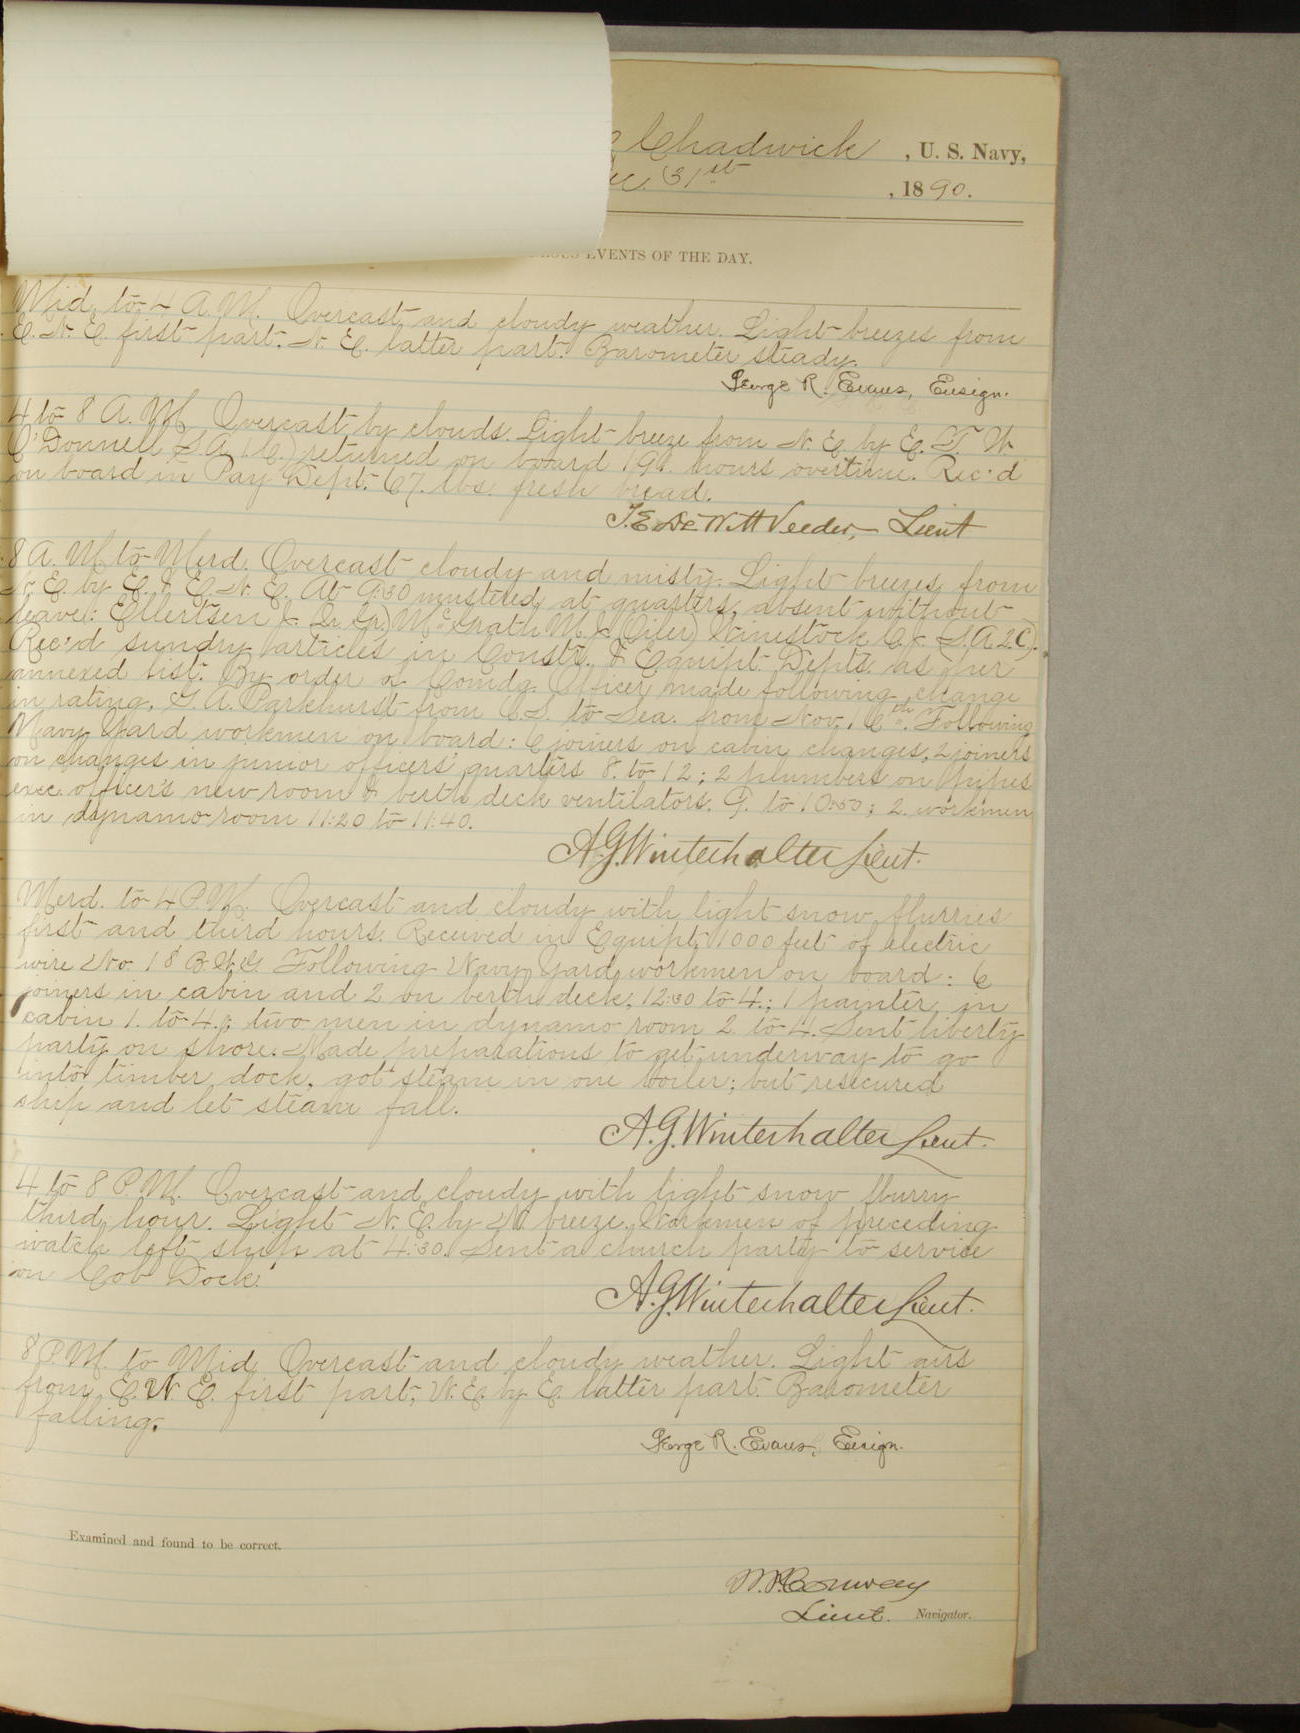 Chadwick, U. S. Navy,
Dec. 31st, 1890.
EVENTS OF THE DAY.
Mid. to 4 A.M. Overcast and cloudy weather. Light breezes from
E. N. E. first part. N. E. latter part. Barometer steady.
George R. Evans, Ensign.
4 to 8 A.M. Overcast by clouds. Light breeze from N. E. by E. T. W.
O'Donnell returned on board 19 1/2 hours overtime. Rec'd
on board in Pay Dept. 67. lbs. fresh bread.
T. E. DeWitt Veeder, Lieut
8 A.M. to Merd. Overcast cloudy and misty. Light breezes from
N. E. by E. & E. N. E. At 9:30 mustered at quarters, absent without
leave: Ellertsen McGrath M. J. (Oiler) Winestock C. J. S.A.2C).
Rec'd sundry articles in Constr. & Equipt. Depts. as per
annexed list. By order of Comdg. Officer made following change
in rating, Parkhurst from to Sea. from Nov. 16th. Following
Navy Yard workmen on board: 6 joiners on cabin changes, 2 joiners
on changes in junior officers' quarters 8. to 12; 2 plumbers on pipes
exec. officer's new room & berth deck ventilators. 9. to 10:50; 2. workmen
in dynamo room 11:20 to 11:40.
A.G. Winterhalter Lieut.
Merd. to 4 P.M. Overcast and cloudy with light snow flurries
first and third hours. Received in Equipt. 1000 feet of electric
wire No. 18 B.W.G. Following Navy Yard workmen on board: 6
joiners in cabin and 2 on berth deck, 12:30 to 4.; 1 painter in
cabin 1. to 4.; two men in dynamo room 2 to 4. Sent liberty
party on shore. Made preparations to get underway to go
into timber dock, got steam in one boiler; but resecured
ship and let steam fall.
A.G. Winterhalter Lieut.
4 to 8 P.M. Overcast and cloudy with light snow flurry
third hour. Light N. E. by N. breeze. Workmen of preceding
watch left ship at 4:30. Sent a church party to service
on Cob Dock.
A.G. Winterhalter Lieut.
8 P.M. to Mid. Overcast and cloudy weather. Light airs
from E. N. E. first part, N. E. by E. latter part. Barometer
falling.
George R. Evans, Ensign.
Examined and found to be correct.
Conway
Lieut. Navigator.